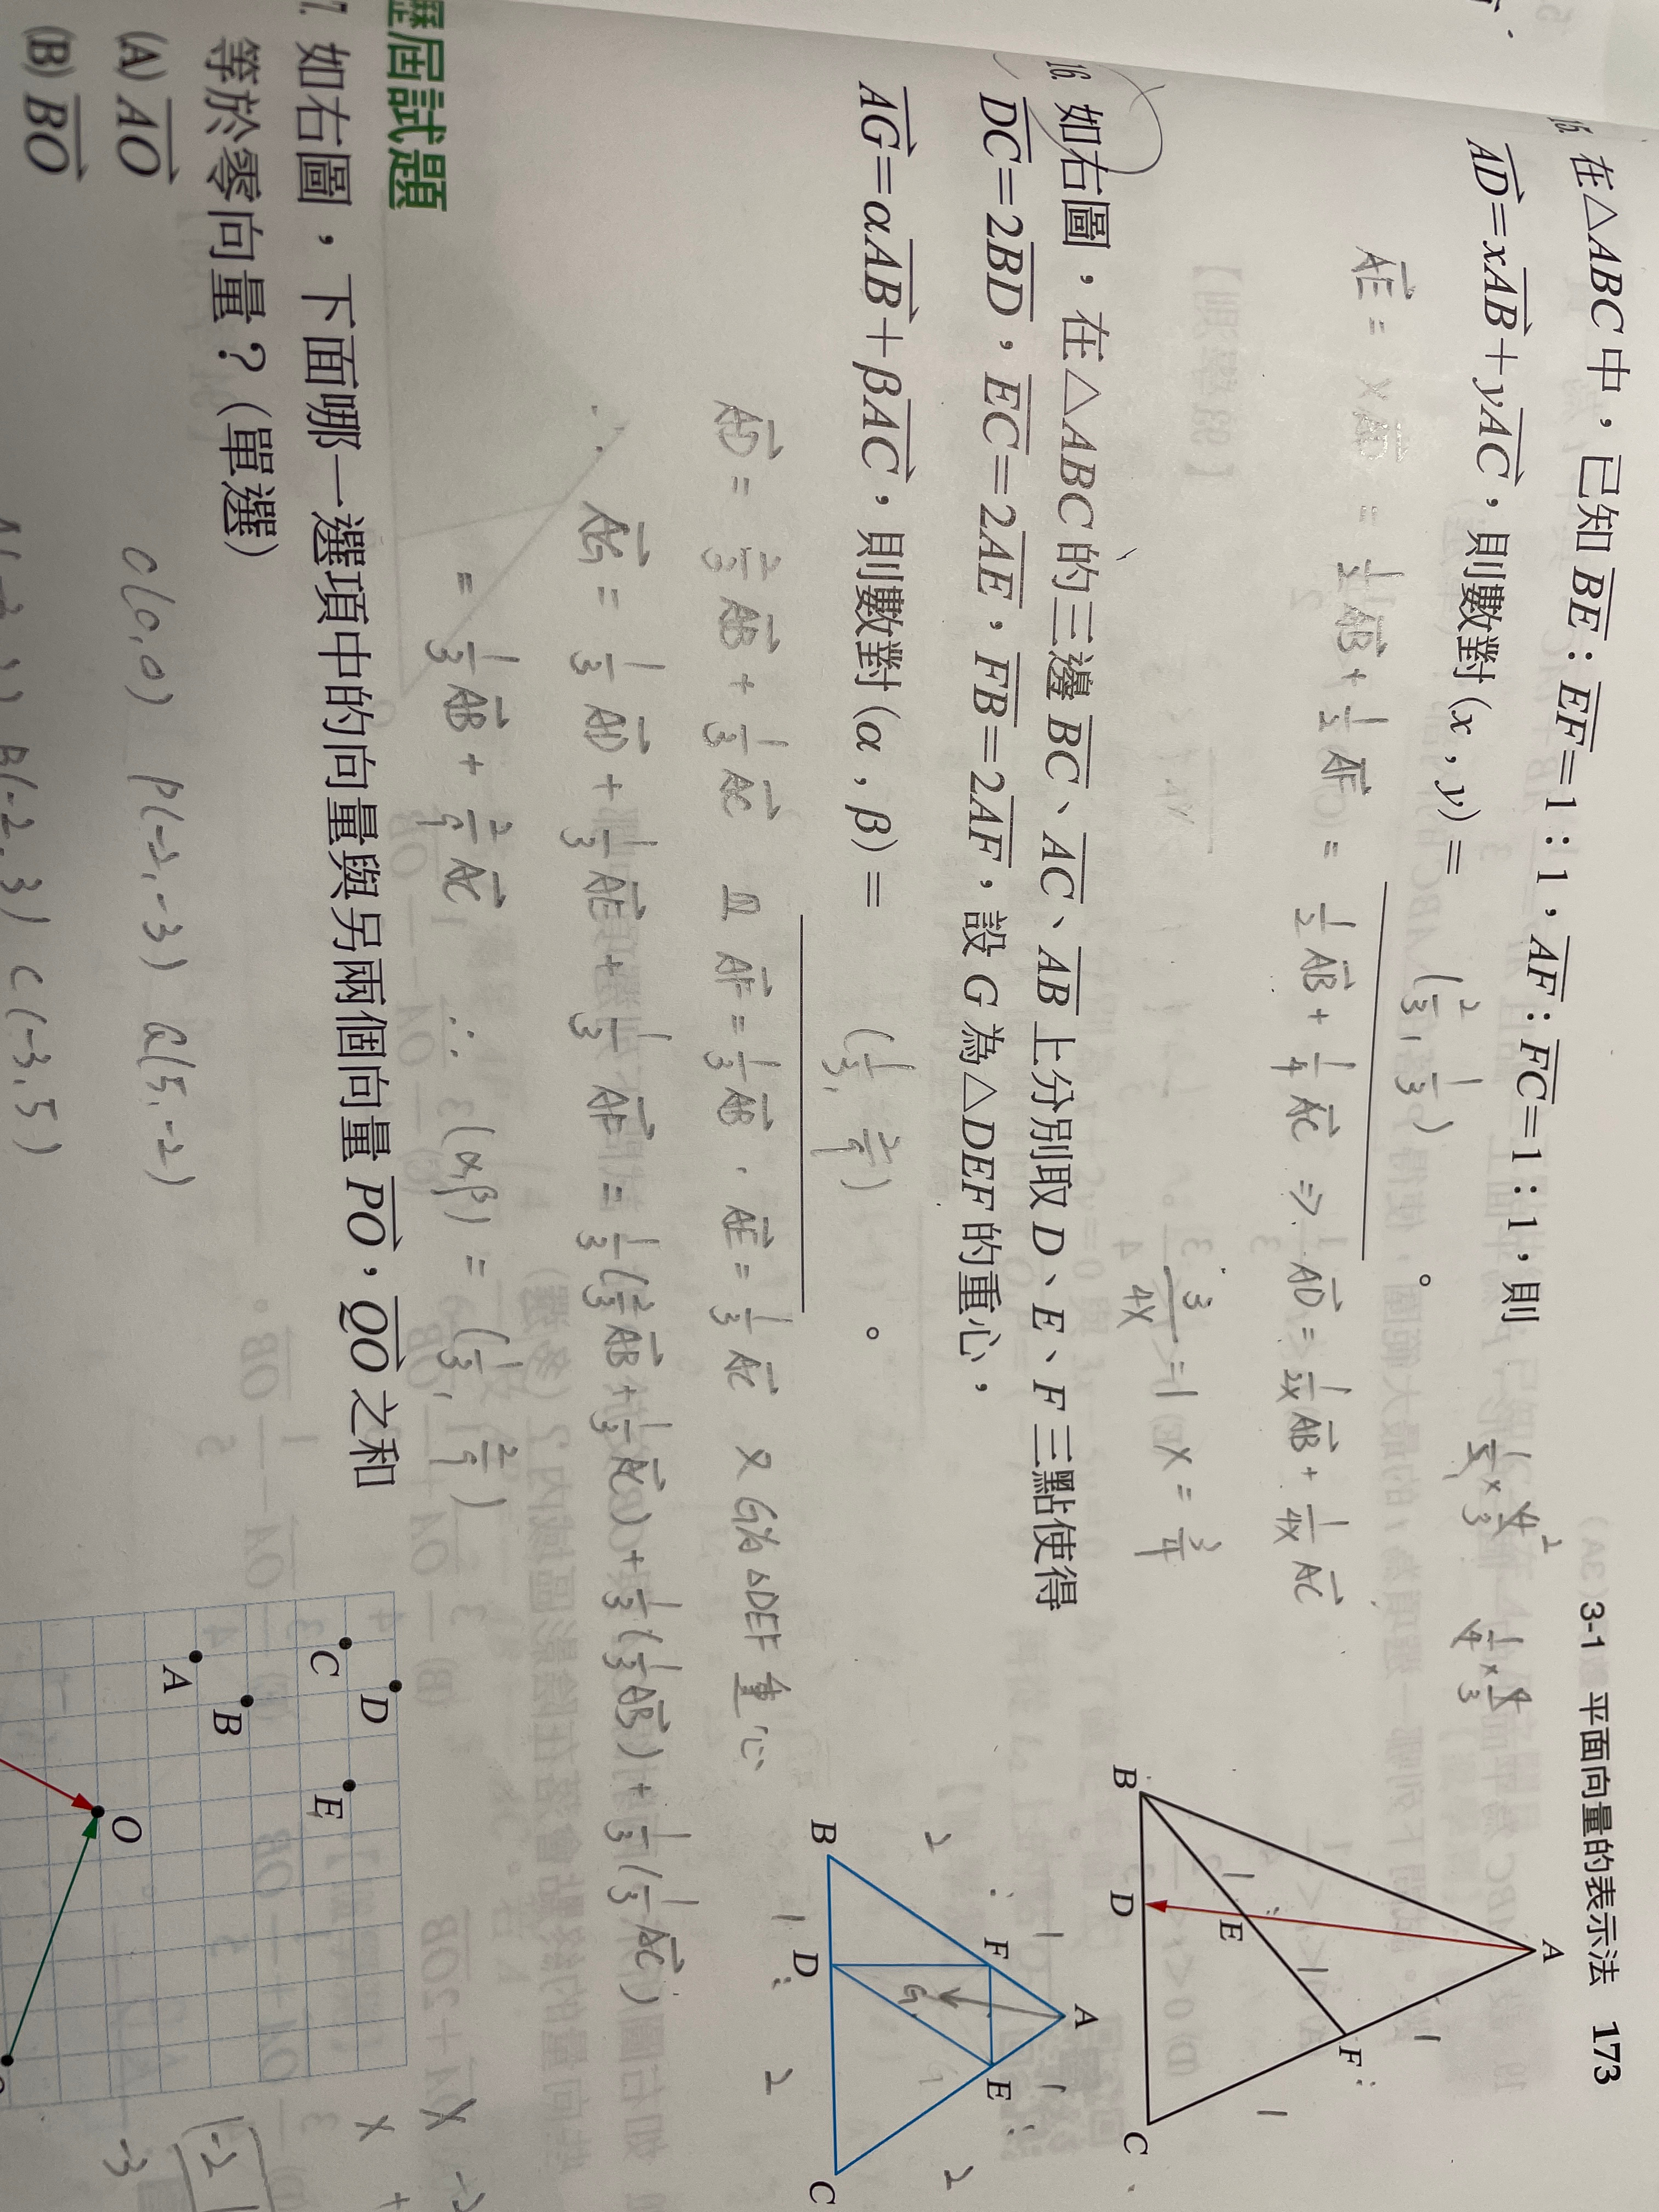 3-1 平面向量的表示法 173
15. 在△ABC 中，已知 BE：EF=1：1，AF：FC=1：1，則
AD=xAB+yAC，則數對 (x , y) = (2/3, 1/3)。
AE = xAD = 1/2 AB + 1/2 AF = 1/2 AB + 1/4 AC ⇒ AD = 1/2x AB + 1/4x AC
3/4x = 1 x = 3/4
A
B
D
E
F
C
1
1
1
1
16. 如右圖，在△ABC 的三邊 BC、AC、AB 上分別取 D、E、F 三點使得
DC=2BD，EC=2AE，FB=2AF，設 G 為△DEF 的重心，
AG=αAB+βAC，則數對 (α , β) = (1/3, 2/9)。
AD = 2/3 AB + 1/3 AC 且 AF = 1/3 AB . AE = 1/3 AC 又 G為△DEF 重心
∴ AG = 1/3 AD + 1/3 AE + 1/3 AF = 1/3 (2/3 AB + 1/3 AC) + 1/3 (1/3 AB) + 1/3 (1/3 AC)
= 1/3 AB + 2/9 AC ∴ (α,β) = (1/3, 2/9)
A
F
E
G
B
D
C
2 : 1
1 : 2
1 : 2
歷屆試題
7. 如右圖，下面哪一選項中的向量與另兩個向量 PO，QO 之和
等於零向量？(單選)
(A) AO
(B) BO
O(0,0) P(-2,-3) Q(5,-2)
B(-2,3) C(-3,5)
D
C
E
B
A
O